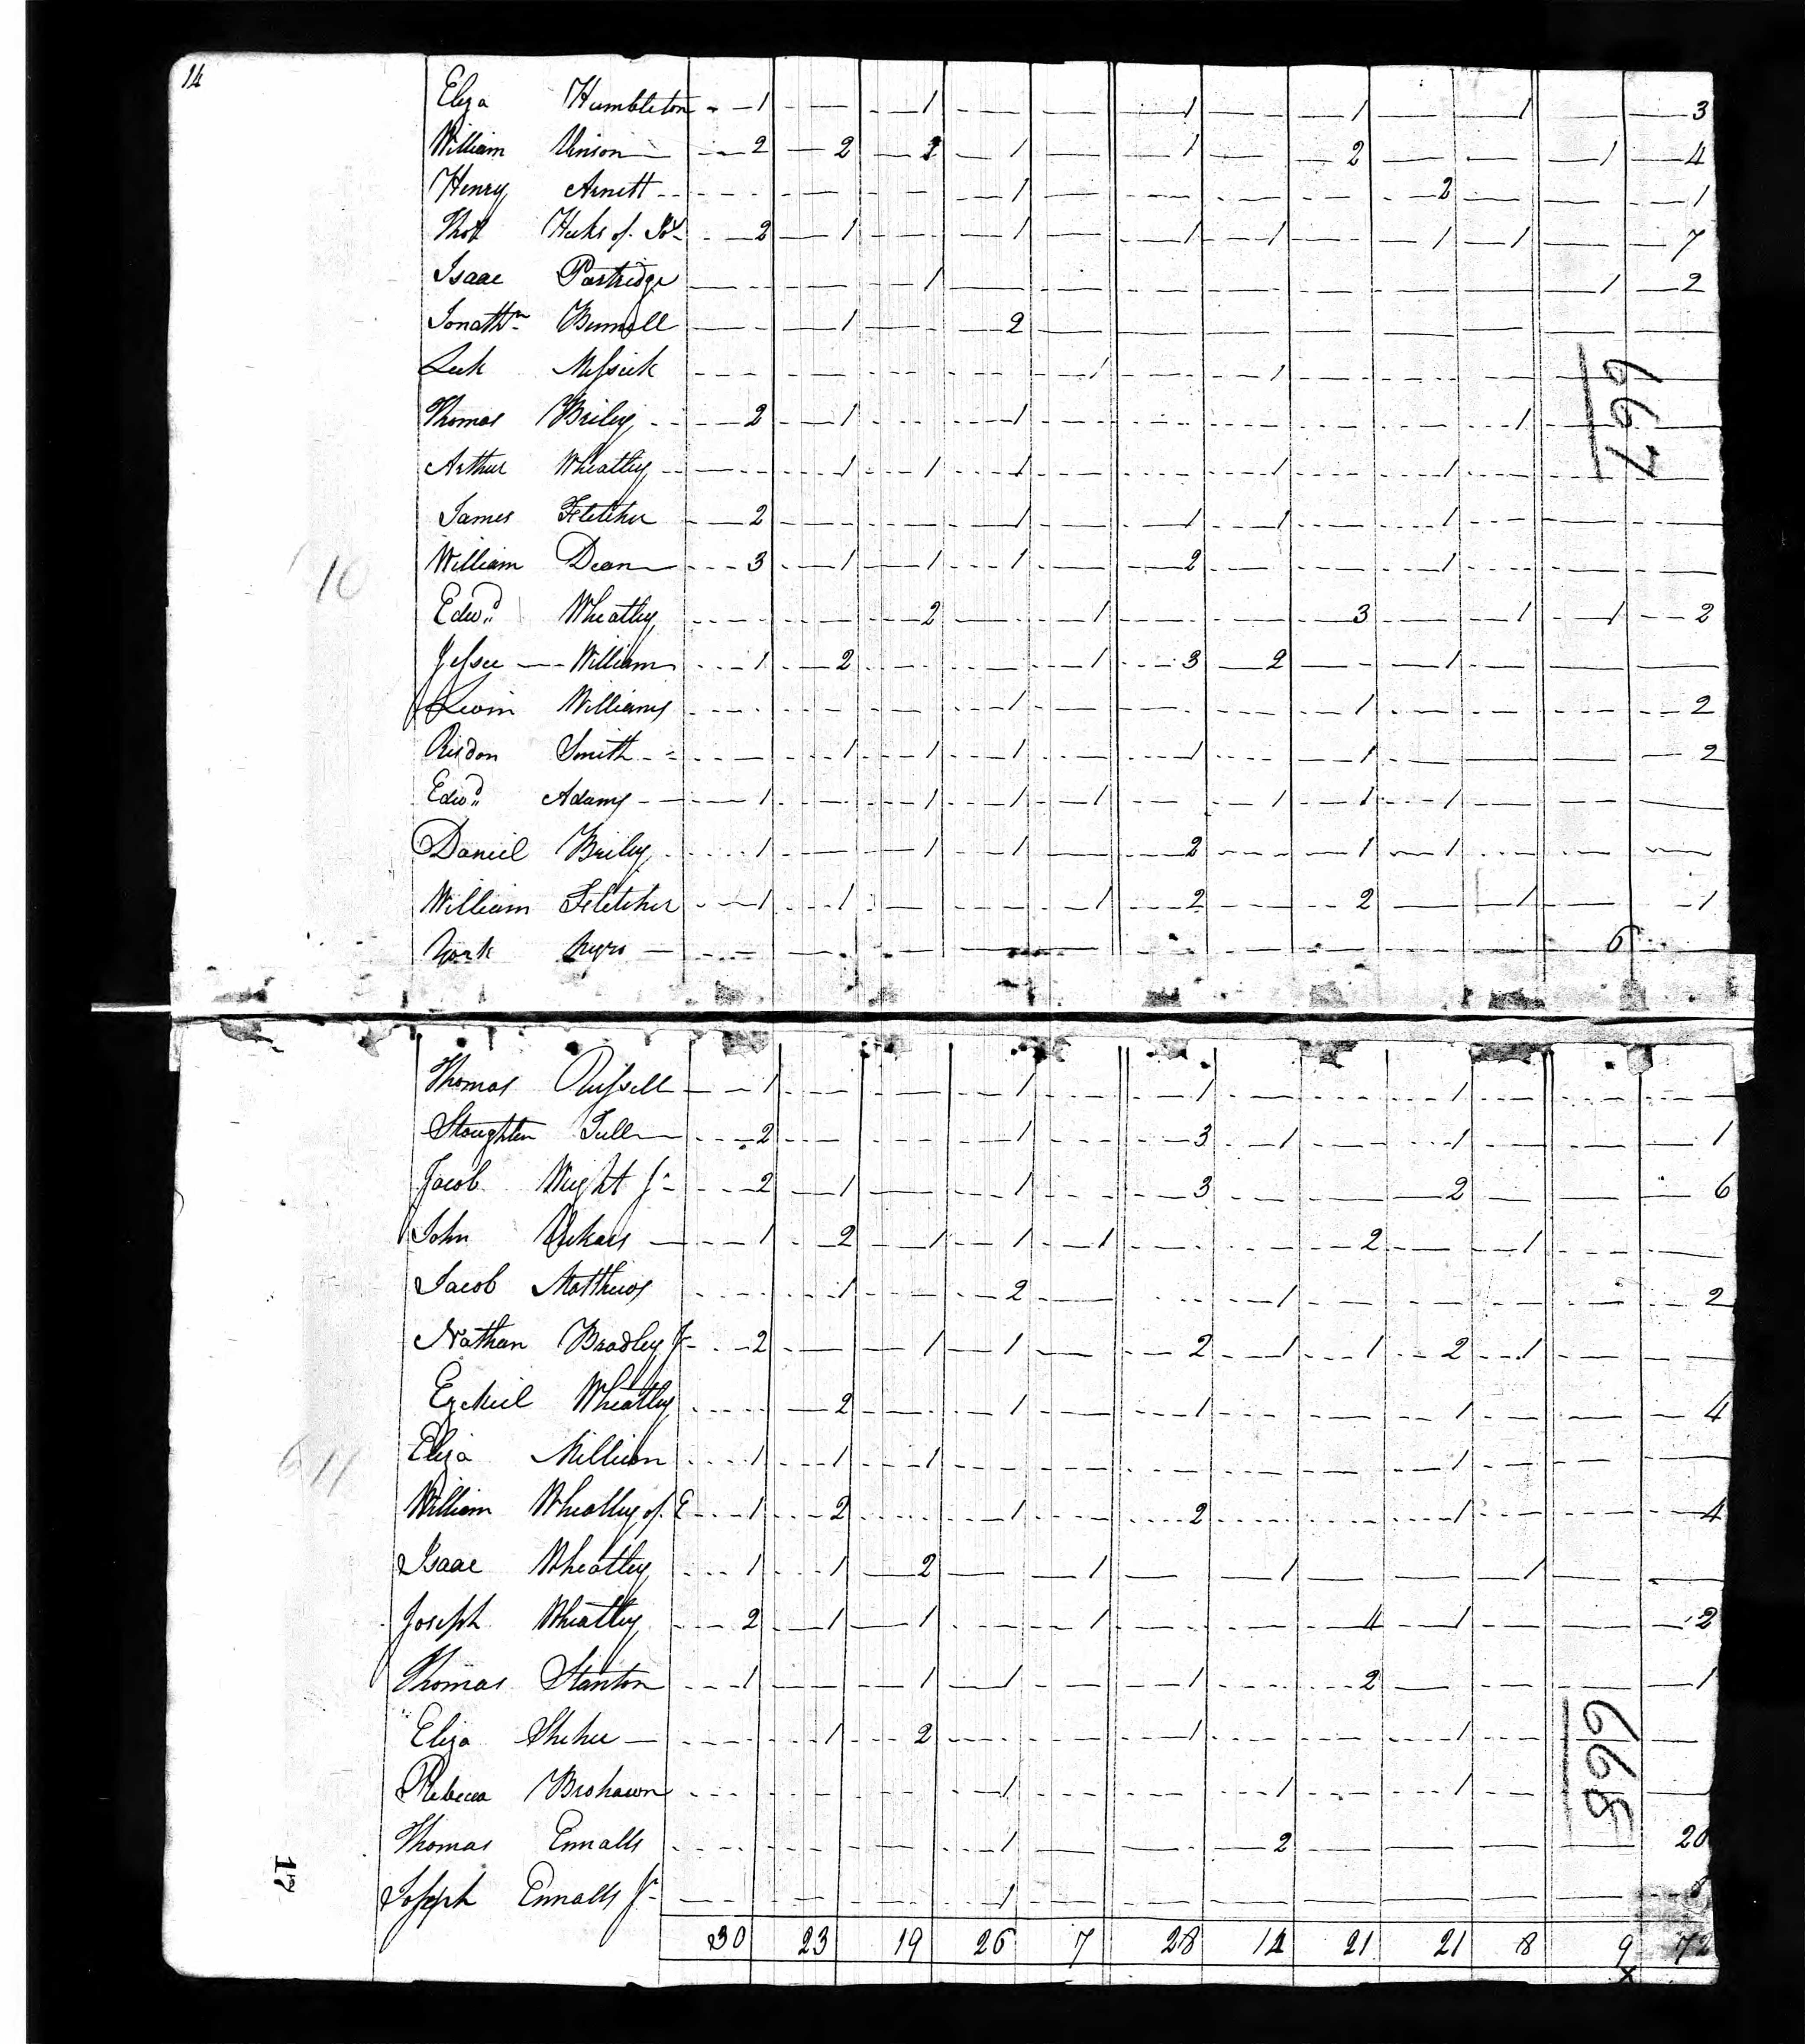 14
Eliza Humbleton 1 1 1 1 1 3
William Vinson 2 2 2 1 1 2 1 4
Henry Arnett 1 2 1
Thos Hicks of 2 1 1 1 1 1 1 7
Isaac Partridge 1 1 2
Jonathn 1 2
Messick 1 1
667
Thomas Briley 2 1 1 1
Arthur Wheatley 1 1 1 1 1
James Fletcher 2 1 1 1 1
10
William Dean 3 1 1 1 2 1
Edwd Wheatley 2 1 3 1 1 2
Jessee William 1 2 1 3 2 1
Levin Williams 1 1 2
Risdon Smith 1 1 1 1 1 2
Edwd Adams 1 1 1 1 1 1 1
Daniel Briley 1 1 1 2 1 1
William Fletcher 1 1 1 2 2 1 1
York Negro 6
Thomas Russell 1 1 1 1
Stoughten Tull 2 1 3 1 1 1
Jacob Wright Jr 2 1 1 3 2 6
John Vickars 1 2 1 1 1 2 1
Jacob Matthews 1 2 1 2
Nathan Bradley Jr 2 1 1 2 1 1 2 1
Ezekiel Wheatley 2 1 1 1 4
11
Eliza Millison 1 1 1 1
William Wheatley of E 1 2 1 2 1 4
Isaac Wheatley 1 1 2 1 1 1
Joseph Wheatley 2 1 1 1 4 1 2
Thomas Stanton 1 1 1 1 2 1
Eliza 1 2 1 1
668
Rebecca Brohawn 1 1 1
Thomas Ennalls 1 2 20
17
Joseph Ennalls Jr 1
30 23 19 26 7 28 14 21 21 8 9 72
x